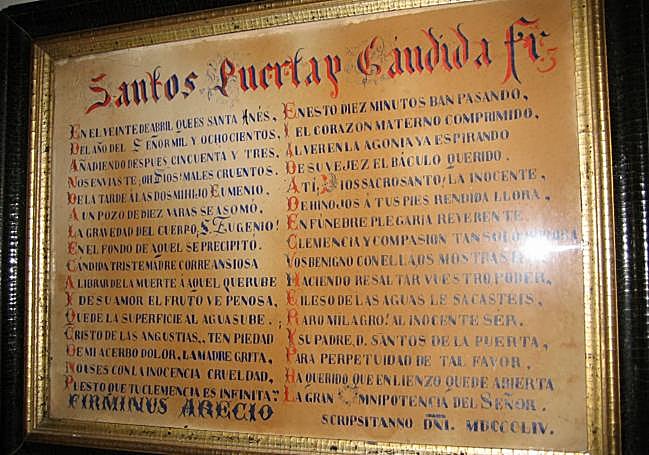 Santos Puerta y Cándida Fr
EN EL VEINTE DE ABRIL QUE ES SANTA INÉS,
DEL AÑO DEL SEÑOR MIL Y OCHOCIENTOS,
AÑADIENDO DESPUES CINCUENTA Y TRES,
NOS ENVIASTE ¡OH DIOS! MALES CRUENTOS.
DE LA TARDE Á LAS DOS MI HIJO EUGENIO,
A UN POZO DE DIEZ VARAS SE ASOMÓ,
LA GRAVEDAD DEL CUERPO, S. EUGENIO!
EN EL FONDO DE AQUEL SE PRECIPITÓ.
CÁNDIDA TRISTE MADRE CORRE ANSIOSA
A LIBRAR DE LA MUERTE Á AQUEL QUERUBE
Y DE SU AMOR EL FRUTO VE PENOSA,
QUE DE LA SUPERFICIE AL AGUA SUBE.
CRISTO DE LAS ANGUSTIAS, TEN PIEDAD
DE MI ACERBO DOLOR, LA MADRE GRITA,
NO USES CON LA INOCENCIA CRUELDAD,
PUESTO QUE TU CLEMENCIA ES INFINITA.
FIRMINUS ARECIO
EN ESTO DIEZ MINUTOS BAN PASANDO,
I EL CORAZON MATERNO COMPRIMIDO,
AL VER EN LA AGONIA YA ESPIRANDO
DE SU VEJEZ EL BÁCULO QUERIDO.
A TÍ, DIOS SACROSANTO! LA INOCENTE,
DE HINOJOS Á TUS PIES RENDIDA LLORA,
EN FÚNEDRE PLEGARIA REVERENTE
CLEMENCIA Y COMPASION TAN SOLO
VOS BENIGNO CON ELLA OS MOSTRASTEIS
HACIENDO RESALTAR VUESTRO PODER,
E ILESO DE LAS AGUAS LE SACASTEIS,
RARO MILAGRO! AL INOCENTE SER.
Y SU PADRE, D. SANTOS DE LA PUERTA,
PARA PERPETUIDAD DE TAL FAVOR,
HA QUERIDO QUE EN LIENZO QUEDE ABIERTA
LA GRAN OMNIPOTENCIA DEL SEÑOR.
SCRIPSIT ANNO DNI. MDCCCLIV.